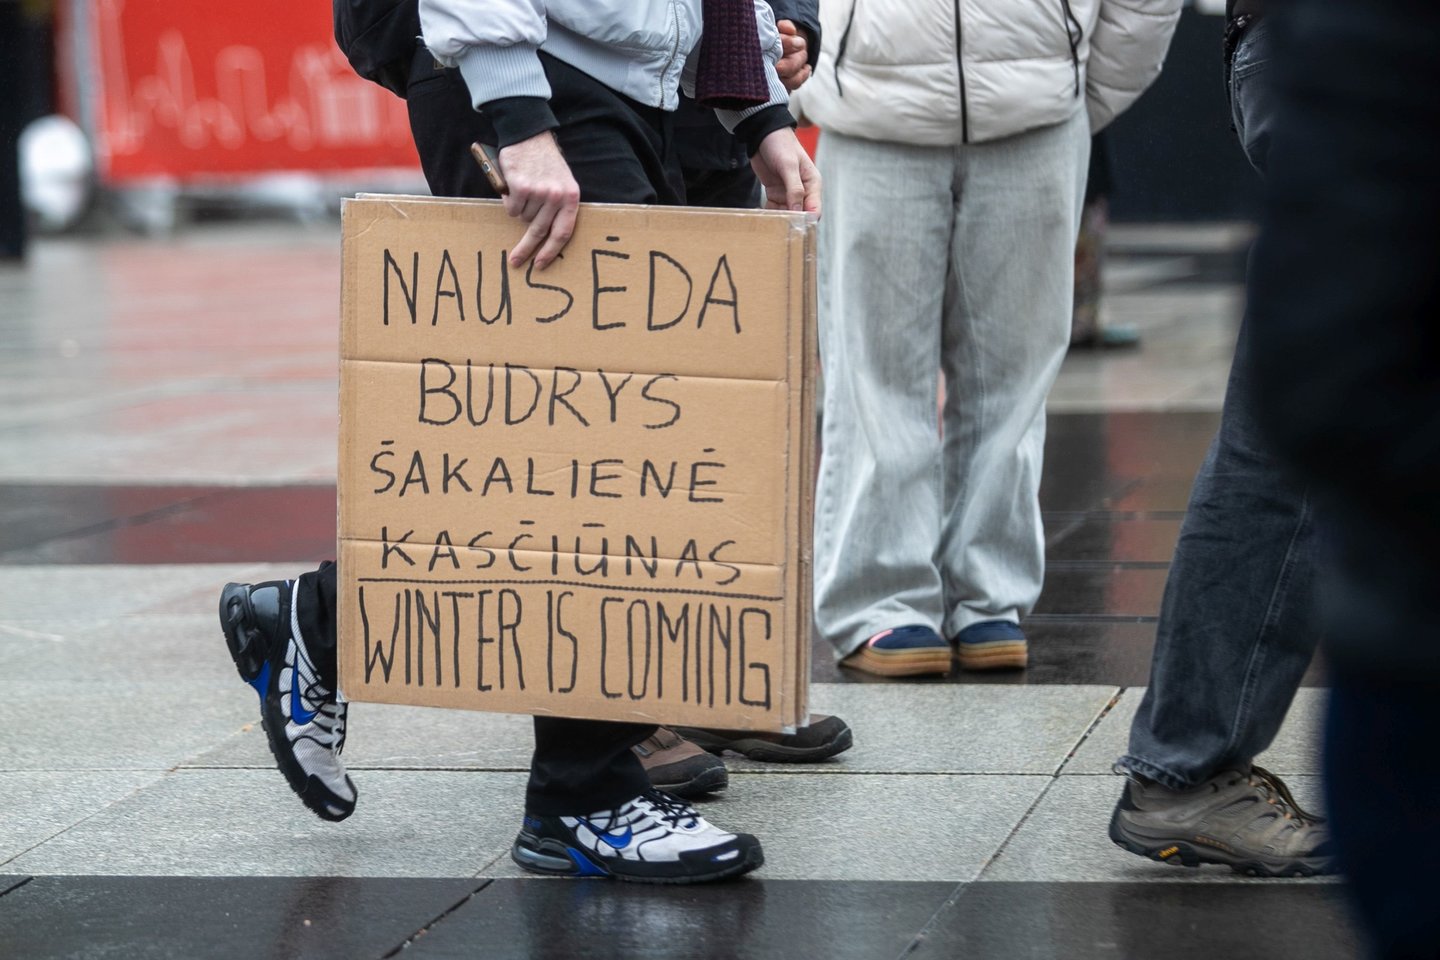 NAUSĖDA
BUDRYS
ŠAKALIENĖ
KASČIŪNAS
WINTER IS COMING